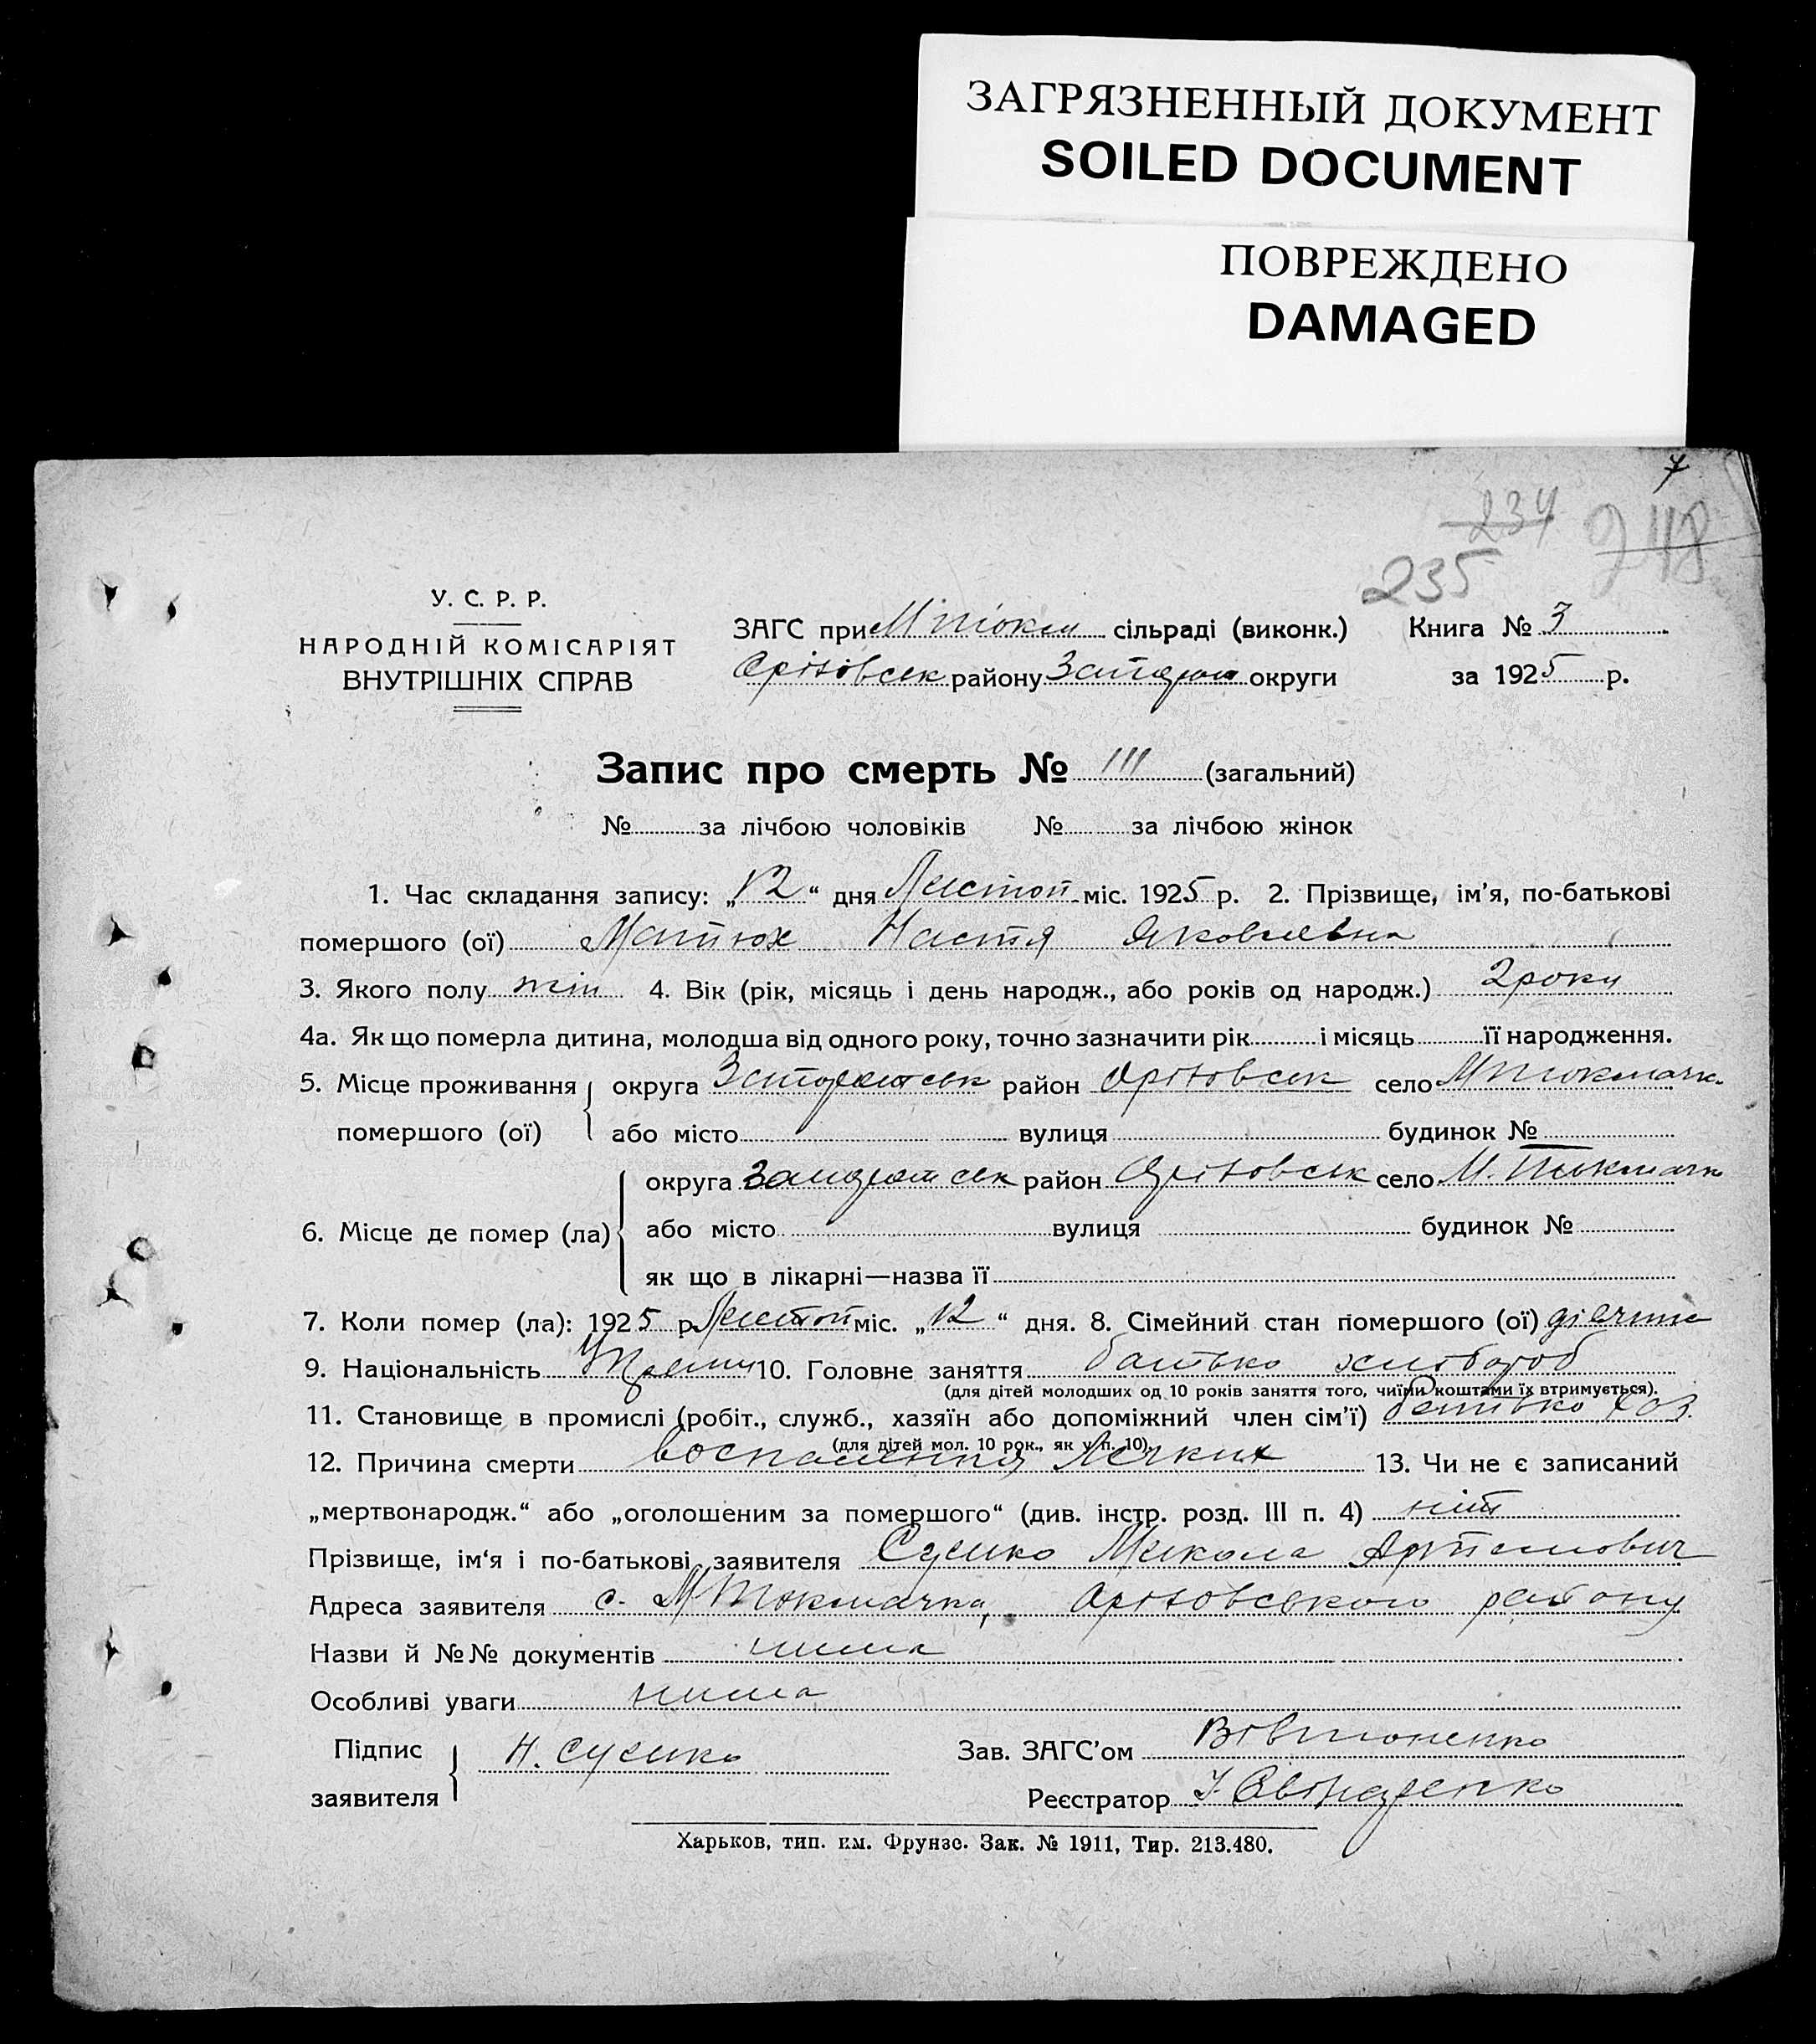 ЗАГРЯЗНЕННЫЙ ДОКУМЕНТ
SOILED DOCUMENT
ПОВРЕЖДЕНО
DAMAGED
7
234 248
235
У. С. Р. Р.
НАРОДНІЙ КОМІСАРІЯТ
ВНУТРІШНІХ СПРАВ
ЗАГС при М Токм сільраді (виконк.) Книга № 3
Оріховськ району Запоріж округи за 1925 р.
Запис про смерть № 111 (загальний)
№ за лічбою чоловіків № за лічбою жінок
1. Час складання запису: „12“ дня Листоп міс. 1925 р. 2. Прізвище, ім’я, по-батькові
помершого (ої) Матюх Настя Яковлевна
3. Якого полу жін 4. Вік (рік, місяць і день народж., або років од народж.) 2 роки
4а. Як що померла дитина, молодша від одного року, точно зазначити рік і місяць її народження.
5. Місце проживання округа Запоріжськ район Оріховськ село М Токмачка
помершого (ої) або місто вулиця будинок №
округа Запоріжськ район Оріховськ село М. Токмачка
6. Місце де помер (ла) або місто вулиця будинок №
як що в лікарні—назва її
7. Коли помер (ла): 1925 р Листоп міс. „12“ дня. 8. Сімейний стан помершого (ої) дівчина
9. Національність 10. Головне заняття батько хлібороб
(для дітей молодших од 10 років заняття того, чиїми коштами їх втримується).
11. Становище в промислі (робіт., служб., хазяїн або допоміжний член сім’ї) батько хоз.
(для дітей мол. 10 рок., як у п. 10).
12. Причина смерти воспаления Легких 13. Чи не є записаний
„мертвонародж.“ або „оголошеним за помершого“ (див. інстр. розд. III п. 4) ніт
Прізвище, ім‘я і по-батькові заявителя Сушко Микола Артемович
Адреса заявителя с. М Токмачка, Оріховського району
Назви й №№ документів нима
Особливі уваги нима
Підпис Н. Сушко Зав. ЗАГС’ом Вівтоненко
заявителя Реєстратор
Харьков, тип. им. Фрунзе. Зак. № 1911, Тир. 213.480.